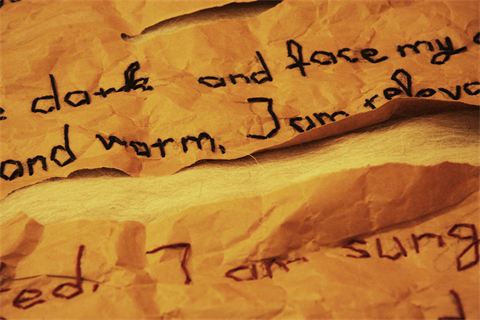 dark and face my
and warm. I am relea
ed. I am sung